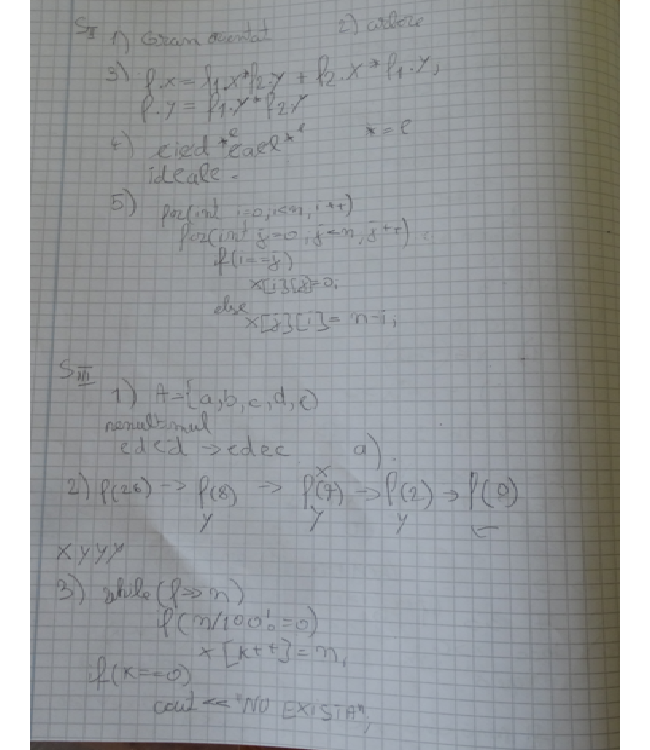 SII 1) Gran orientat 2) arbore
3) f.x = f1.x*f2.y + f2.x*f1.y;
f.y = f1.y*f2.y
4) eied *eael* * = l
ideale.
5) for(int i=0,i<n,i++)
for(int j=0;j<n,j++)
if(i==j)
x[i][j]=0;
else
x[j][i]=n-i;
SIII
1) A={a,b,c,d,e}
penultimul
eded → edec a).
2) f(26) → f(8) → f(4) → f(2) → f(0)
x
y y y
xyyy
3) while(f>>n)
if(n/100!=0)
x[k++]=n,
if(k==0)
cout<<"NU EXISTA";